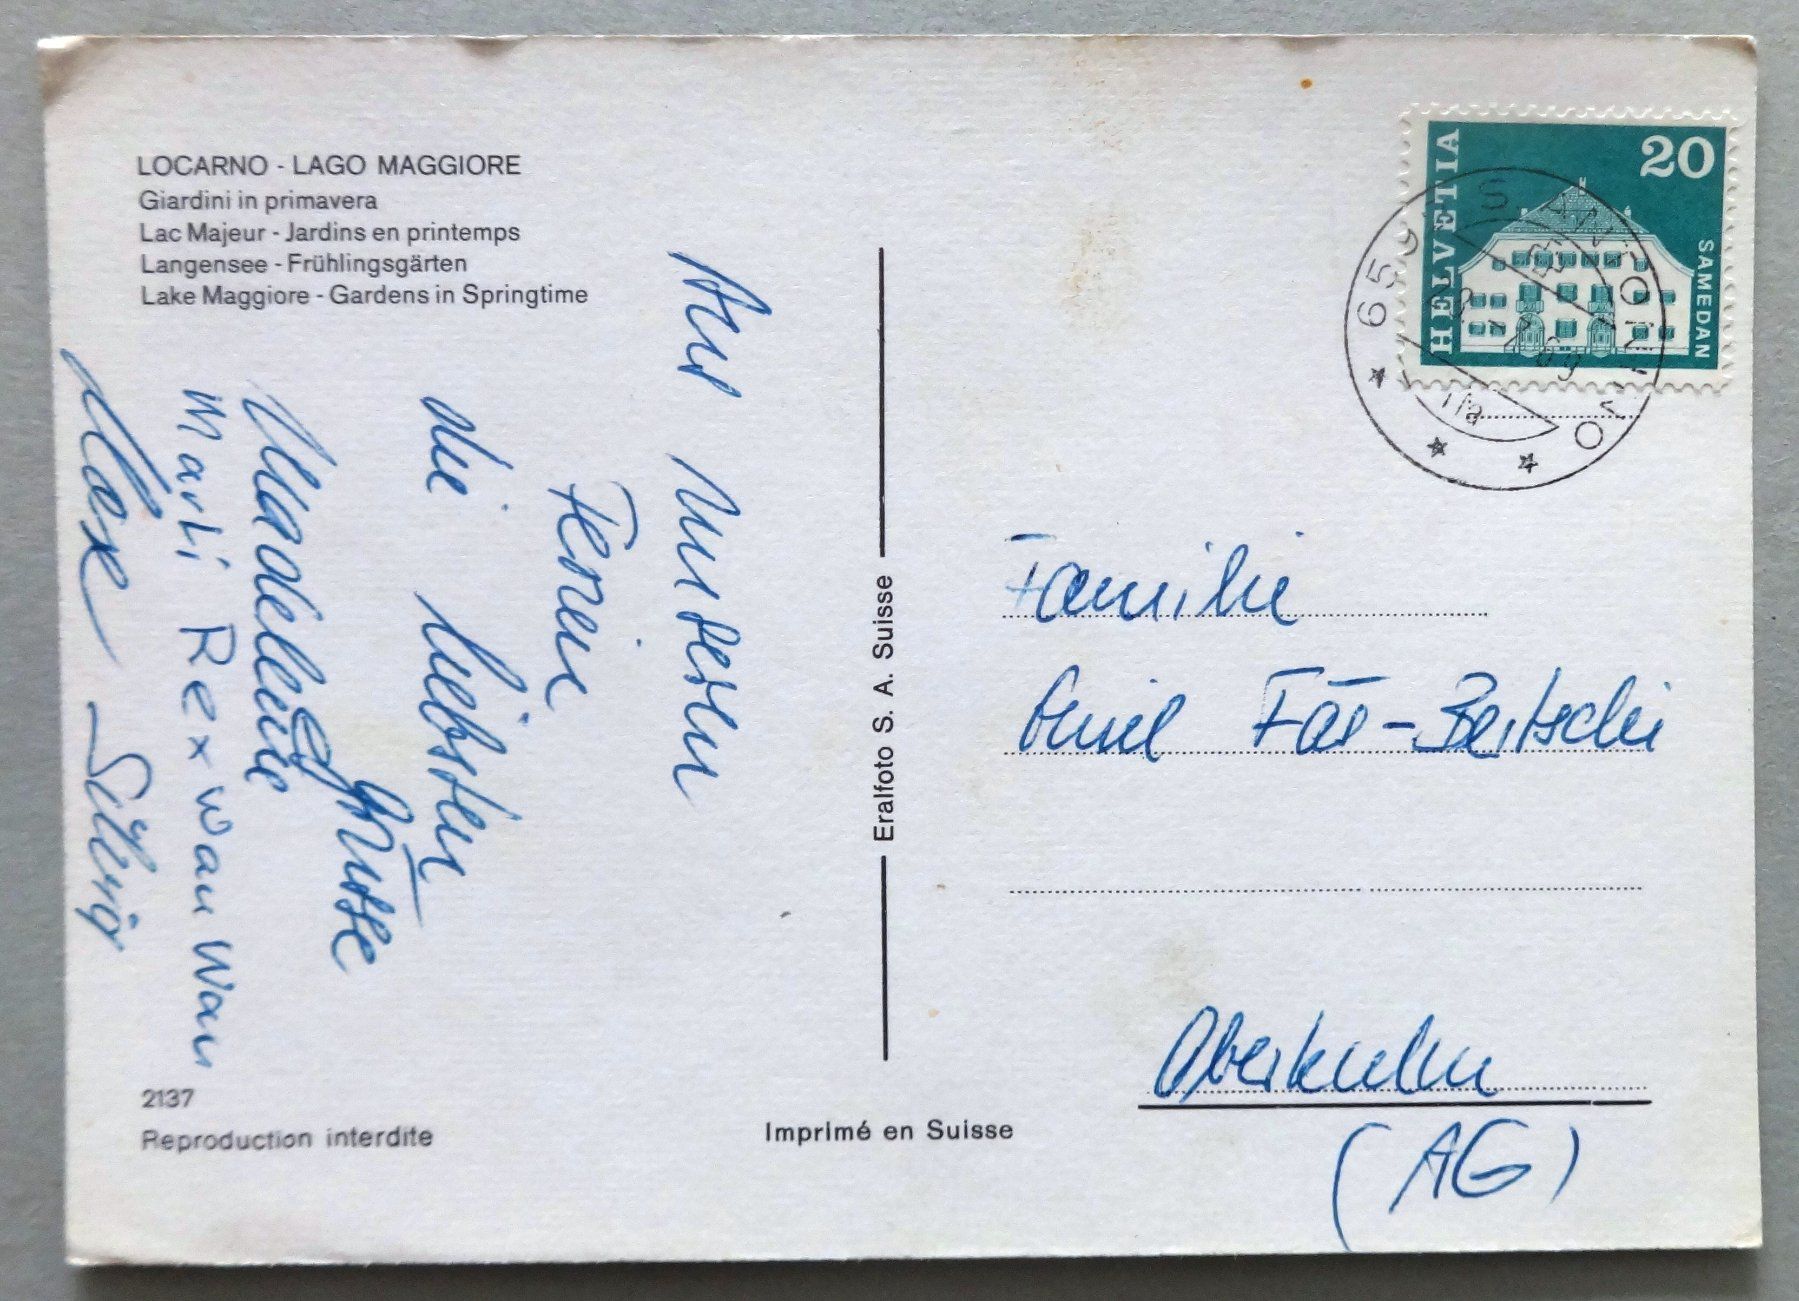 LOCARNO - LAGO MAGGIORE
Giardini in primavera
Lac Majeur - Jardins en printemps
Langensee - Frühlingsgärten
Lake Maggiore - Gardens in Springtime
Aus unseren
Ferien
die liebsten
Grüsse
Madeleine
Marli Rexwanwan
Max
2137
Reproduction interdite
Eralfoto S. A. Suisse
Imprimé en Suisse
HELVETIA
20
SAMEDAN
S. ANTONINO
Familie
Emil Fäs-Bertschi
Oberkulm
(AG)